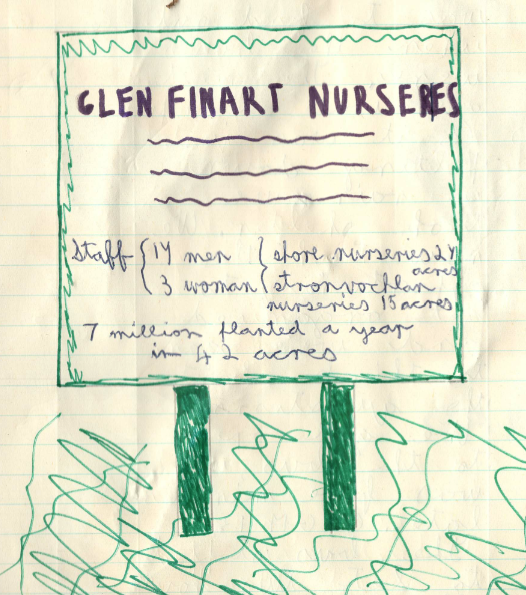 GLEN FINART NURSERIES
Staff { 17 men { shore nurseries 27
acres
3 woman stronvochlan
nurseries 15 acres
7 million planted a year
in 42 acres